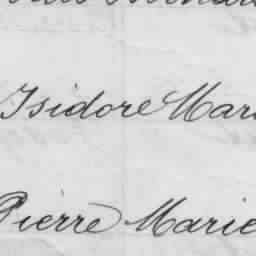 Isidore Mar
Pierre Marie